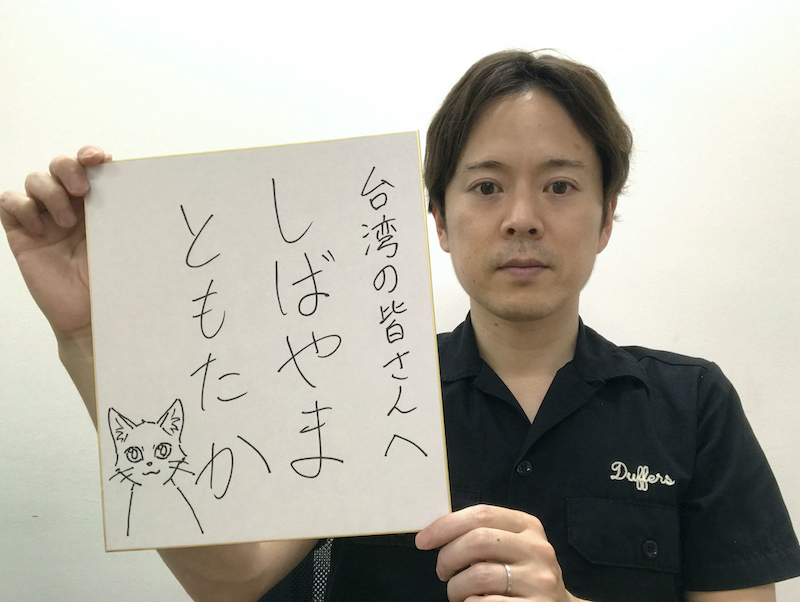 台湾の皆さんへ
しばやま
ともたか
Duffers